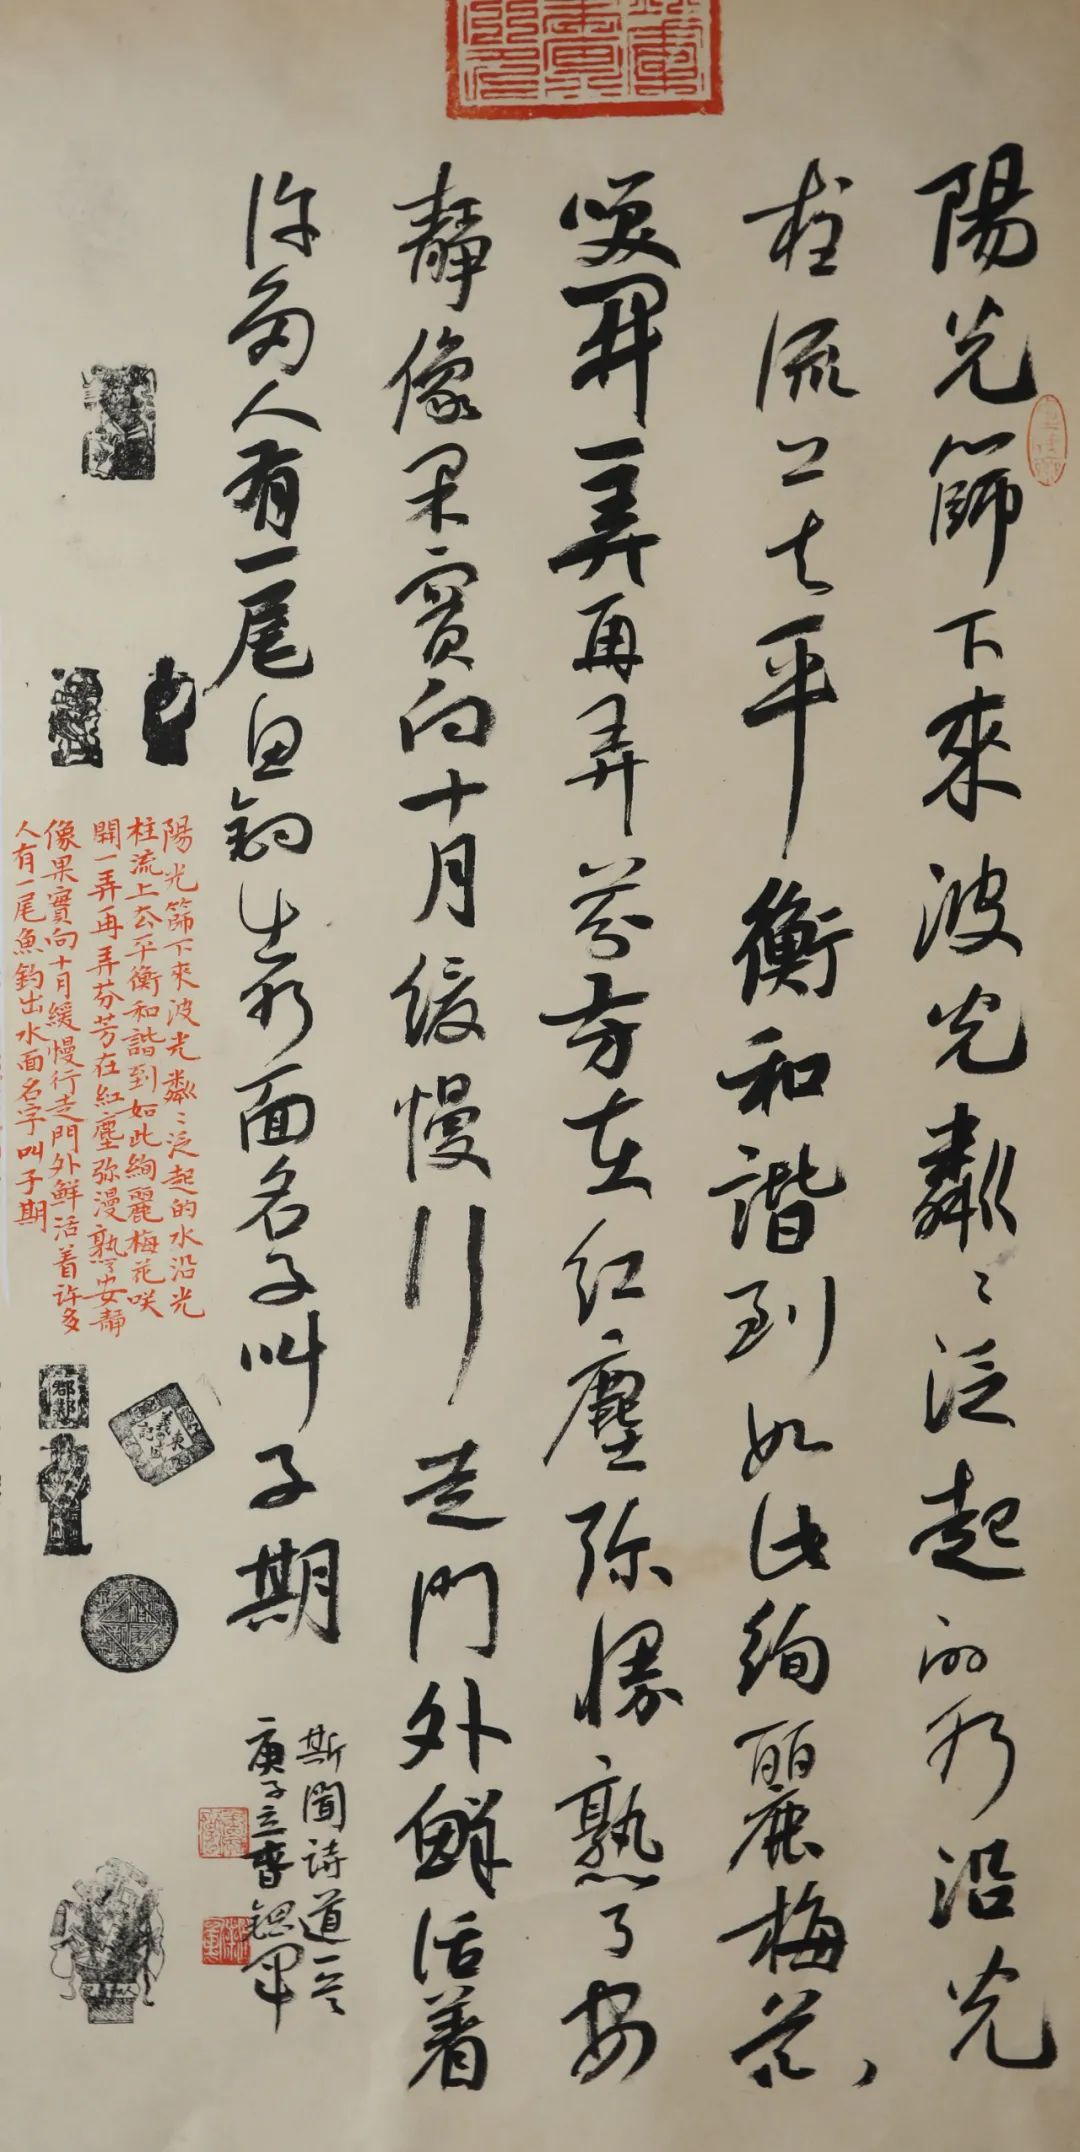 陽光篩下來波光粼〻泛起的水沿光
柱流上去平衡和諧到如此絢麗梅花
咲開一弄再弄芬芳在紅塵弥漫熟了安
靜像果實向十月緩慢行走門外鮮活着
许多人有一尾魚钓出水面名字叫子期
斯聞诗道一首
庚子立春
陽光篩下來波光粼〻泛起的水沿光
柱流上去平衡和諧到如此絢麗梅花咲
開一弄再弄芬芳在紅塵弥漫熟了安靜
像果實向十月緩慢行走門外鮮活着许多
人有一尾魚钓出水面名字叫子期